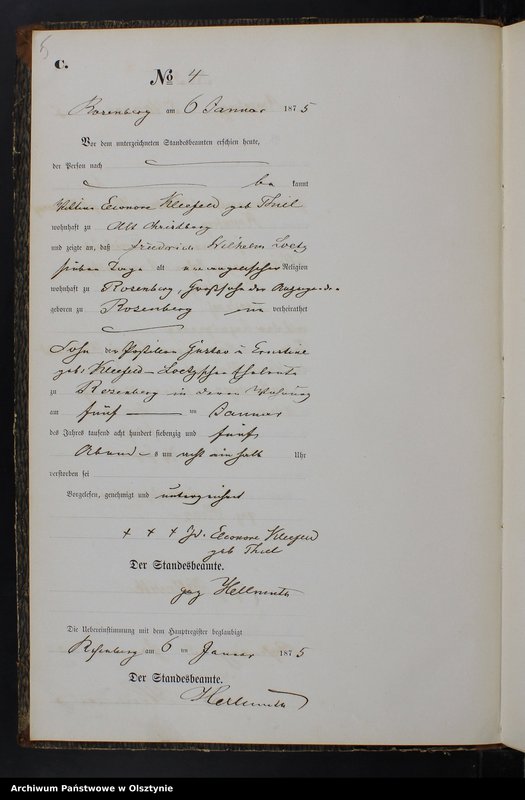 5
C.
No 4
Rosenberg am 6 Januar 1875
Vor dem unterzeichneten Standesbeamten erschien heute,
der Person nach
be kannt
Eleonore Kleefeld geb Thiel
wohnhaft zu Alt Christburg
und zeigte an, daß Friedrich Wilhelm Loetz
sieben Tage alt evangelischer Religion
wohnhaft zu Rosenberg, Großsohn der Anzeigenden
geboren zu Rosenberg un verheirathet
Sohn der Postillon Gustav u Ernstine
geb. Kleefeld – Loetzschen Eheleute
zu Rosenberg in deren Wohnung
am fünf ten Januar
des Jahres tausend acht hundert siebenzig und fünf
Abends um acht einhalb Uhr
verstorben sei
Vorgelesen, genehmigt und unterzeichnet
+ + + Eleonore Kleefeld
geb Thiel
Der Standesbeamte.
gez Hellmuth
Die Uebereinstimmung mit dem Hauptregister beglaubigt
Rosenberg am 6 ten Januar 1875
Der Standesbeamte.
Hellmuth
Archiwum Państwowe w Olsztynie